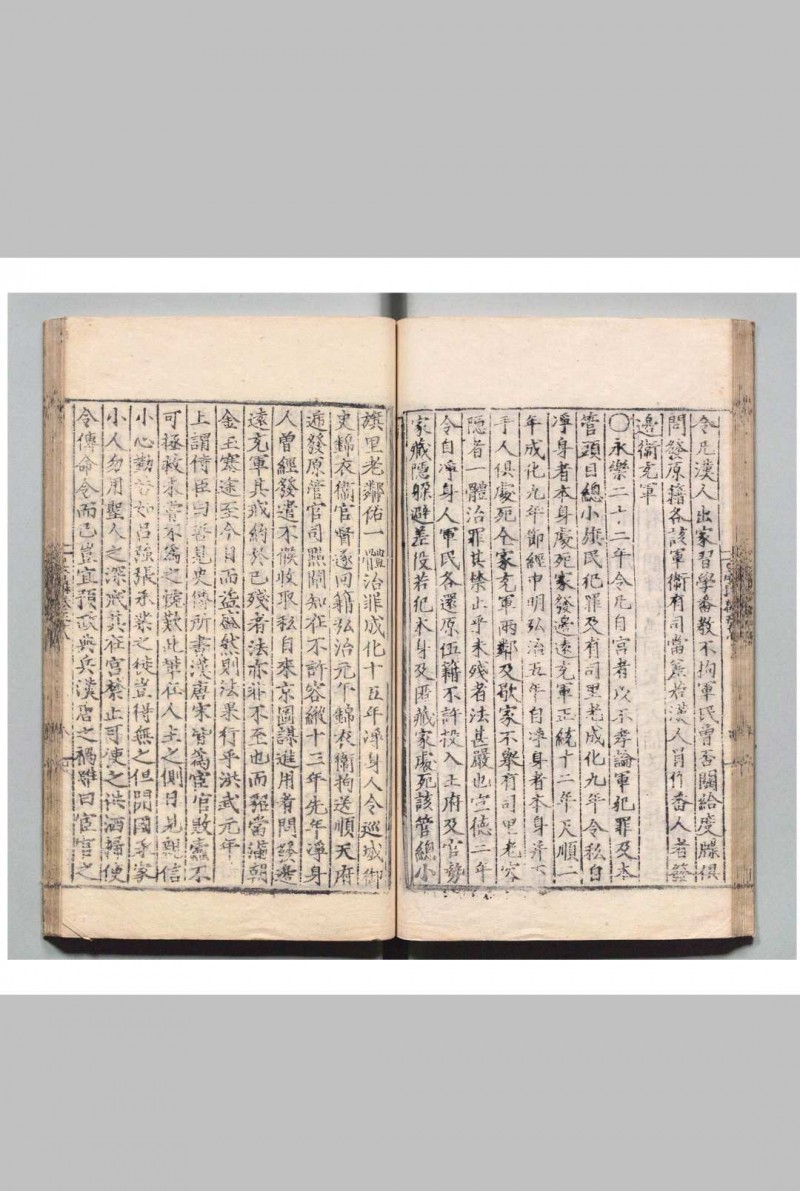 令凡漢人出家習學番教不拘軍民曾否關給度牒俱
問發原籍各該軍衛有司當差若漢人冒作番人者發
邊衛充軍
〇永樂二十二年令凡自宮者以不孝論軍犯罪及本
管頭目總小旗民犯罪及有司里老成化九年令私自
淨身者本身處死家發邊遠充軍正統十二年天順二
年成化九年節經申明弘治五年自淨身者本身并下
手人俱處死全家充軍兩鄰及歇家不舉有司里老容
隱者一體治罪其禁止乎未殘者法甚嚴也宣德二年
令自淨身人軍民各還原伍籍不許投入王府及官勢
家藏隱躲避差役若犯本身及匿藏家處死該管總小
旗里老鄰佑一體治罪成化十五年淨身人令巡城御
史錦衣衛官督逐回籍弘治元年錦衣衛拘送順天府
遞發原管官司照關知在不許容縱十三年先年淨身
人曾經發遣不候收取私自來京圖謀進用者問發邊
遠充軍其戒約於已殘者法亦非不至也而貂當滿朝
金玉塞途至今日而盜盛然則法果行乎洪武元年
上謂侍臣曰吾見史傳所書漢唐末皆為宦官敗蠹不
可拯救未嘗不為之惋歎此輩在人主之側日見親信
小心勤勞如呂強張承業之徒豈得無之但開國承家
小人勿用聖人之深戒其在宮禁止可使之供洒掃使
令傳命令而已豈宜預政典兵漢唐之禍雖曰宦官之